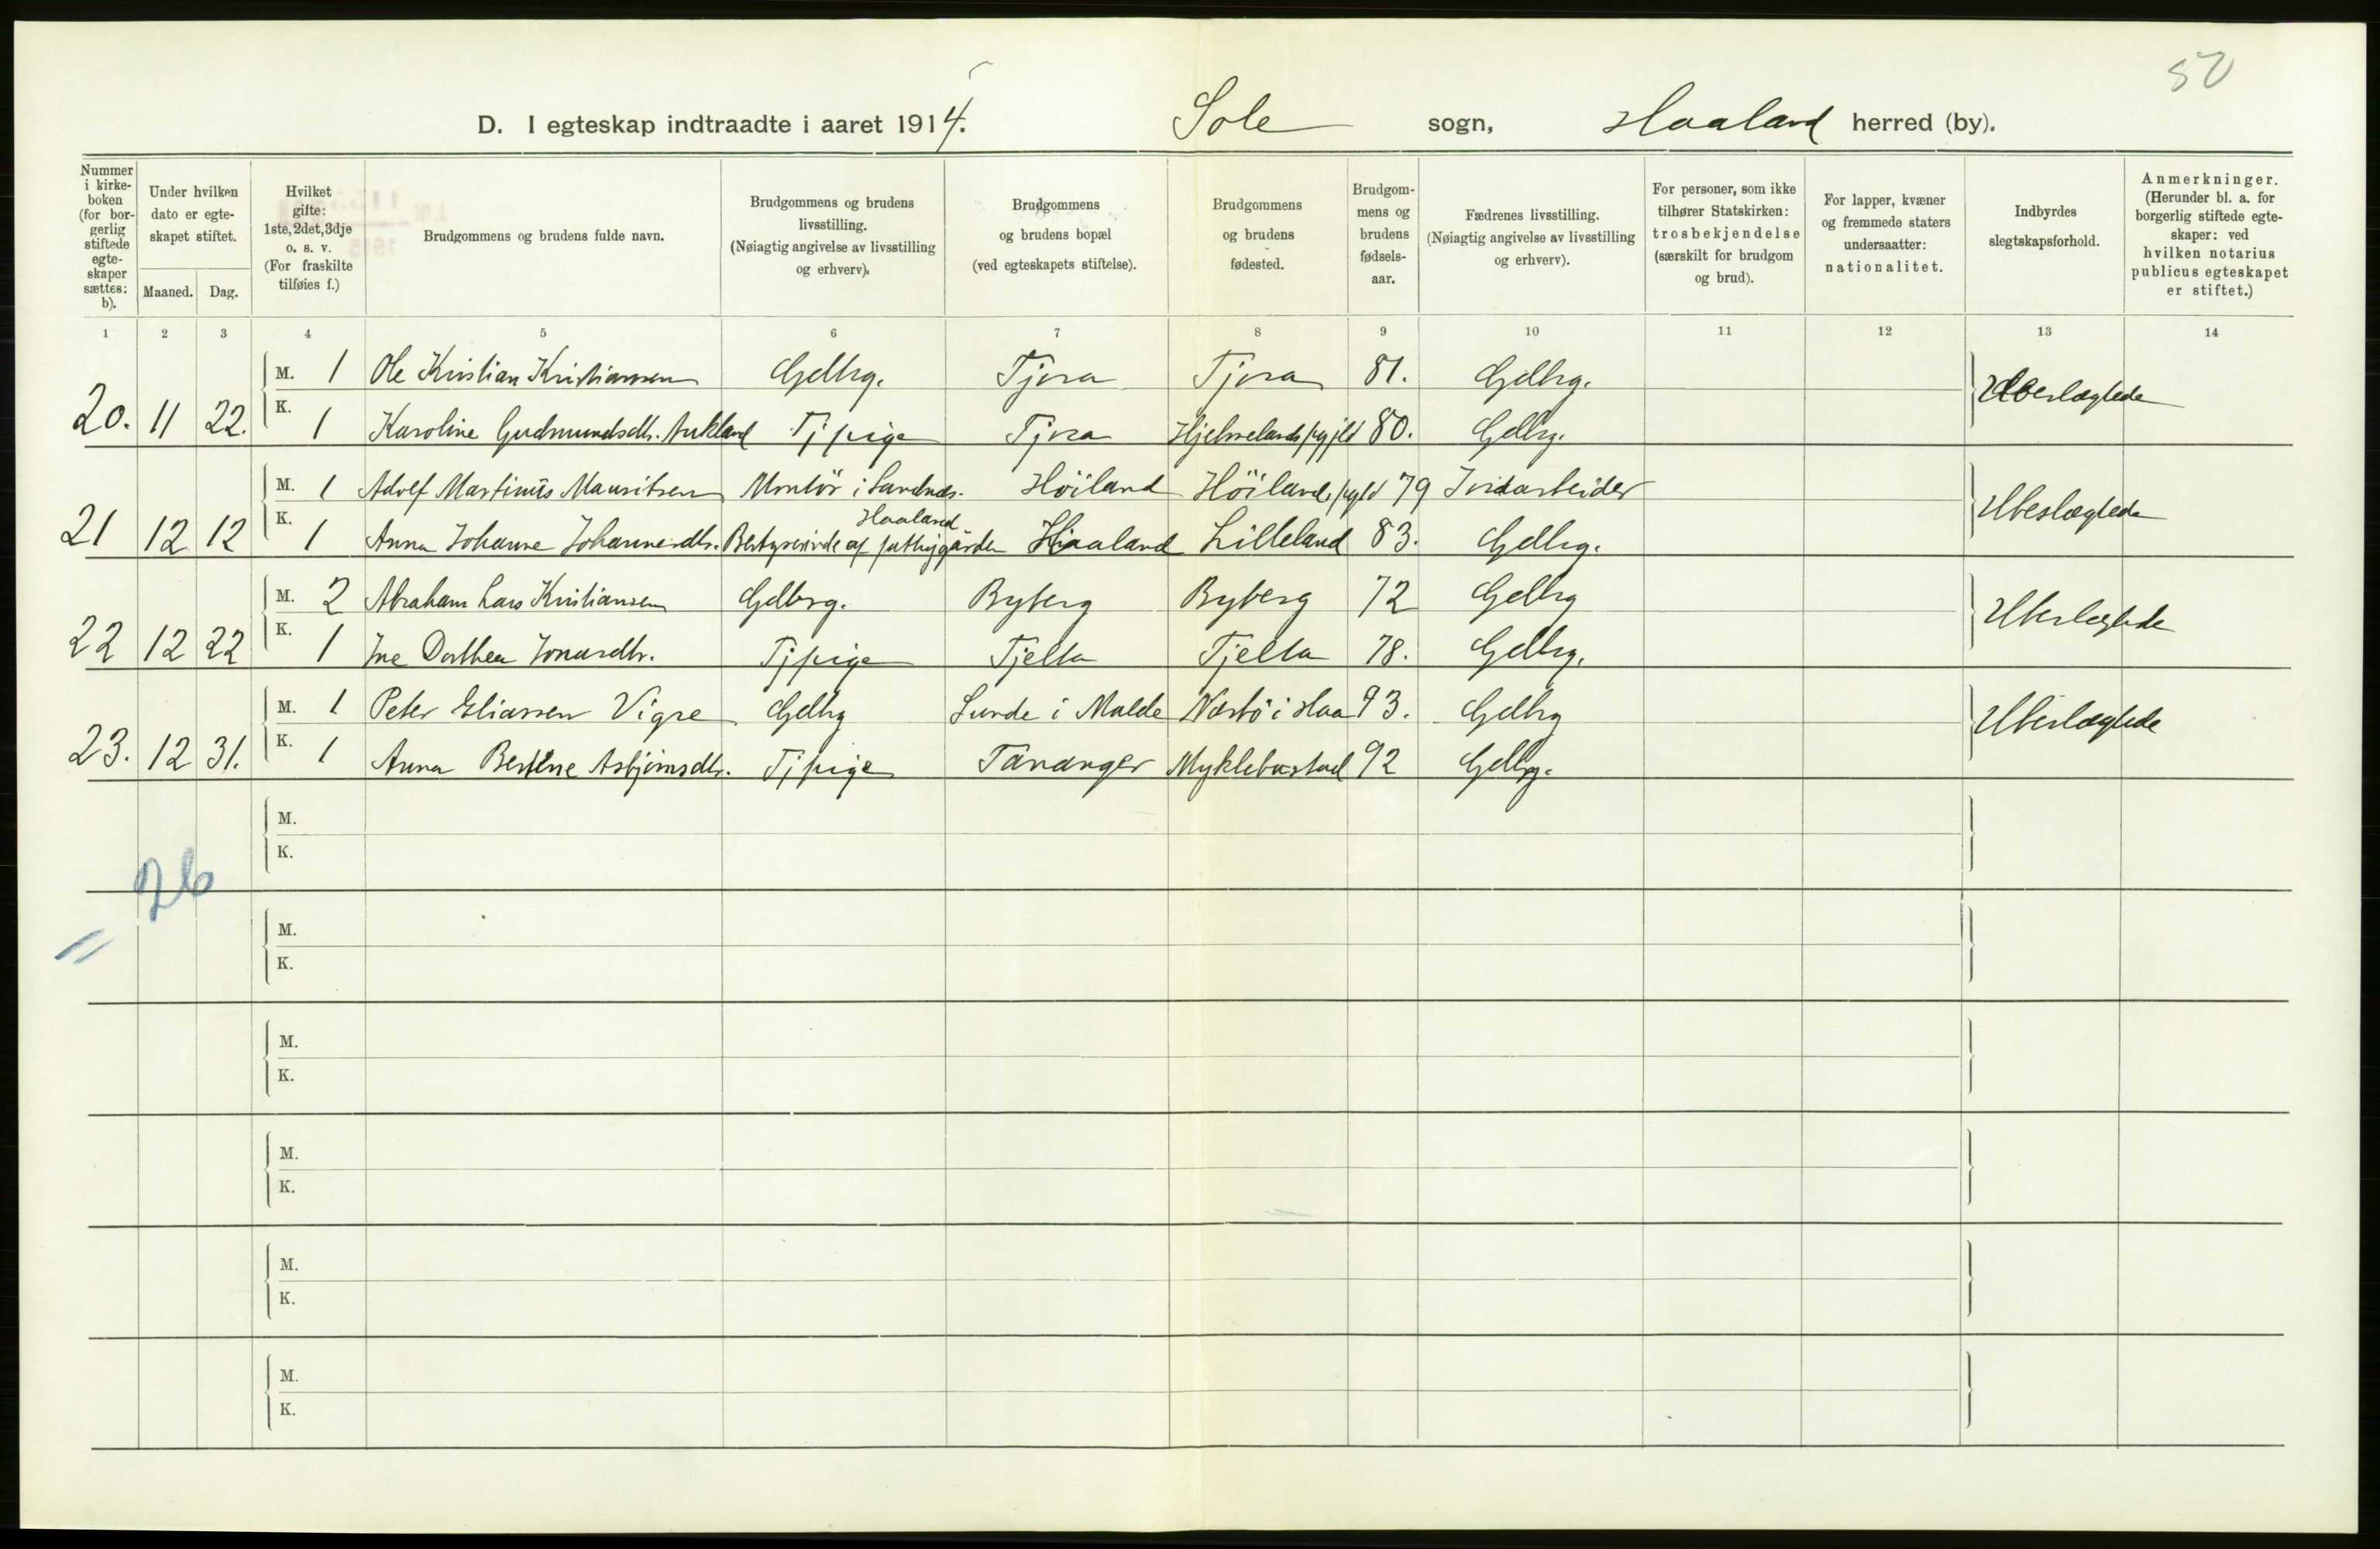 50
D. I egteskap indtraadte i aaret 1914. Sole sogn, Haaland herred (by).
Nummer i kirkeboken (for borgerlig stiftede egteskaper sættes: b). Under hvilken dato er egteskapet stiftet. Maaned. Dag. Hvilket gifte: 1ste, 2det, 3dje o. s. v. (For fraskilte tilføies f.) Brudgommens og brudens fulde navn. Brudgommens og brudens livsstilling. (Nøiagtig angivelse av livsstilling og erhverv). Brudgommens og brudens bopæl (ved egteskapets stiftelse). Brudgommens og brudens fødested. Brudgommens og brudens fødselsaar. Fædrenes livsstilling. (Nøiagtig angivelse av livsstilling og erhverv). For personer, som ikke tilhører Statskirken: trosbekjendelse (særskilt for brudgom og brud). For lapper, kvæner og fremmede staters undersaatter: nationalitet. Indbyrdes slegtskapsforhold. Anmerkninger. (Herunder bl. a. for borgerlig stiftede egteskaper: ved hvilken notarius publicus egteskapet er stiftet.)
1 2 3 4 5 6 7 8 9 10 11 12 13 14
M. 1 Ole Kristian Kristiansen Gdbrg. Tjora Tjora 81. Gdbrg. Ubeslægtede
20. 11 22. K. 1 Karoline Gudmundsdtr. Aukland Tjpige Tjora Hjelmelands prgjld 80. Gdbrg.
M. 1 Adolf Martinus Mauritsen Montör i Sandnes. Höiland Höilands prgld 79 Jordarbeider Ubeslægtede
Haaland
21 12 12 K. 1 Anna Johanne Johannesdtr. Bestyrerinde af fattiggården Haaland Lilleland 83. Gdbrg.
M. 2 Abraham Lars Kristiansen Gdbrg. Byberg Byberg 72 Gdbrg Ubeslægtede
22 12 22 K. 1 Ine Dorthea Jonasdtr. Tjpige Tjelta Tjelta 78. Gdbrg.
M. 1 Peter Eliassen Vigre Gdbrg Sunde i Malde Nærbö i Haa 93. Gdbrg Ubeslægtede
23. 12 31. K. 1 Anna Bertine Asbjörnsdtr. Tjpige Tananger Myklebostad 92 Gdbrg.
M.
K.
26
M.
K.
M.
K.
M.
K.
M.
K.
M.
K.